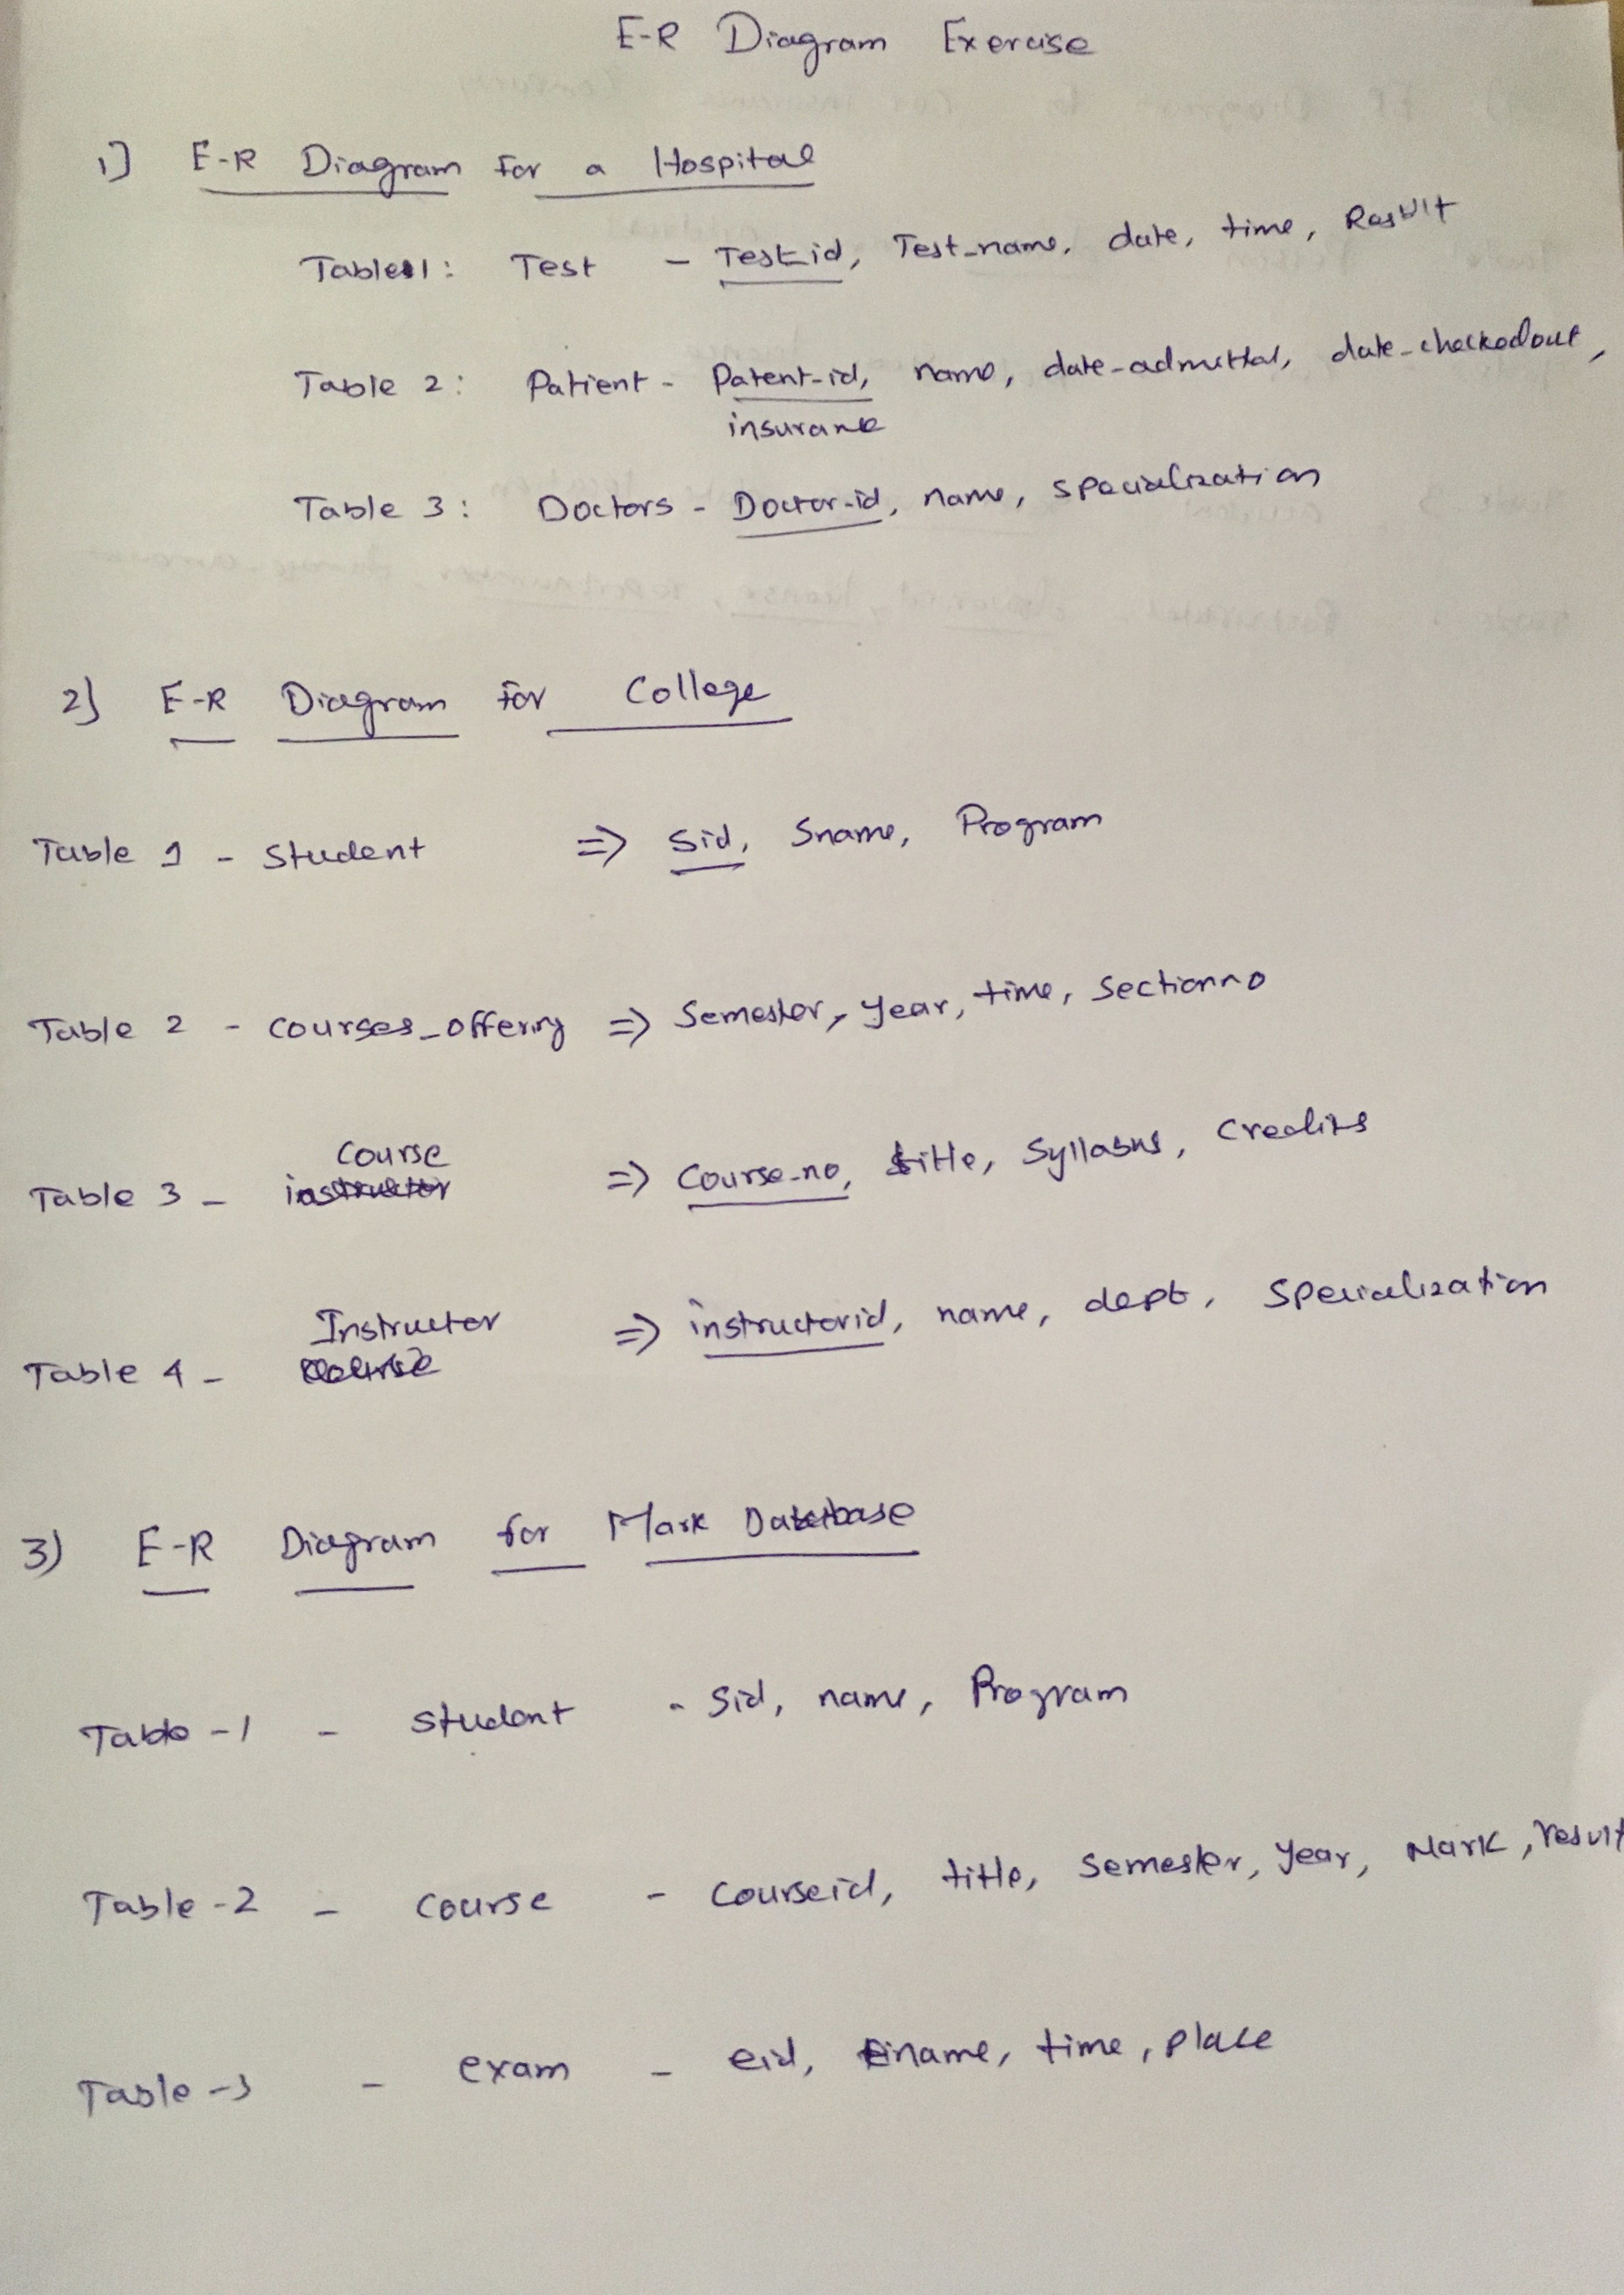 E-R Diagram Exercise
1) E-R Diagram for a Hospital
Table 1: Test - Test_id, Test_name, date, time, Result
Table 2: Patient - Patent-id, name, date-admitted, date-checkedout,
insurance
Table 3: Doctors - Doctor-id, name, specialization
2) E-R Diagram for College
Table 1 - Student => Sid, Sname, Program
Table 2 - courses_offering => Semester, year, time, sectionno
Table 3 - Course => Course-no, title, Syllabus, Credits
Table 4 - Instructor => instructorid, name, dept, specialization
3) E-R Diagram for Mark Database
Table-1 - Student - Sid, name, Program
Table-2 - course - courseid, title, semester, year, Mark, result
Table-3 - exam - eid, name, time, place